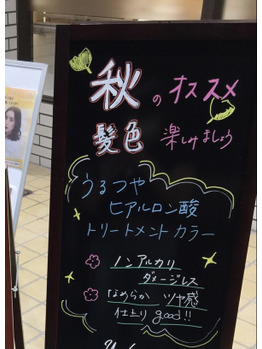 秋のオススメ
髪色 楽しみましょう
うるつや
ヒアルロン酸
トリートメントカラー
ノンアルカリ
ダメージレス
なめらか ツヤ感
仕上り good!!